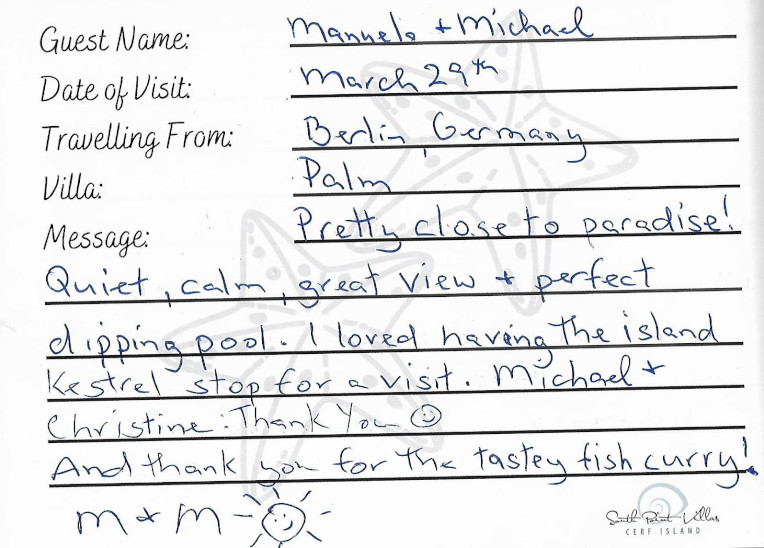 Guest Name: Manuela + Michael
Date of Visit: March 29th
Travelling From: Berlin, Germany
Villa: Palm
Message: Pretty close to paradise!
Quiet, calm, great view + perfect
dipping pool. I loved having the island
Kestrel stop for a visit. Michael +
Christine: Thank You ☺
And thank you for the tastey fish curry!
M + M
South Point Villas
CERF ISLAND